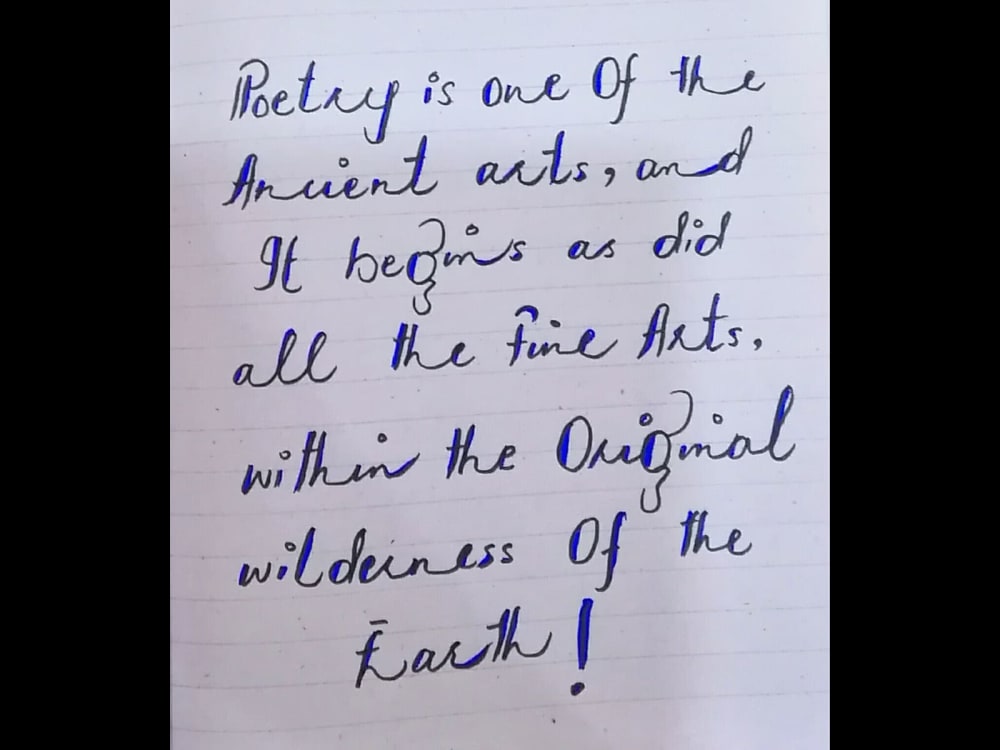 Poetry is one Of the
Ancient arts, and
It begins as did
all the Fine Arts,
within the Original
wilderness Of the
Earth!